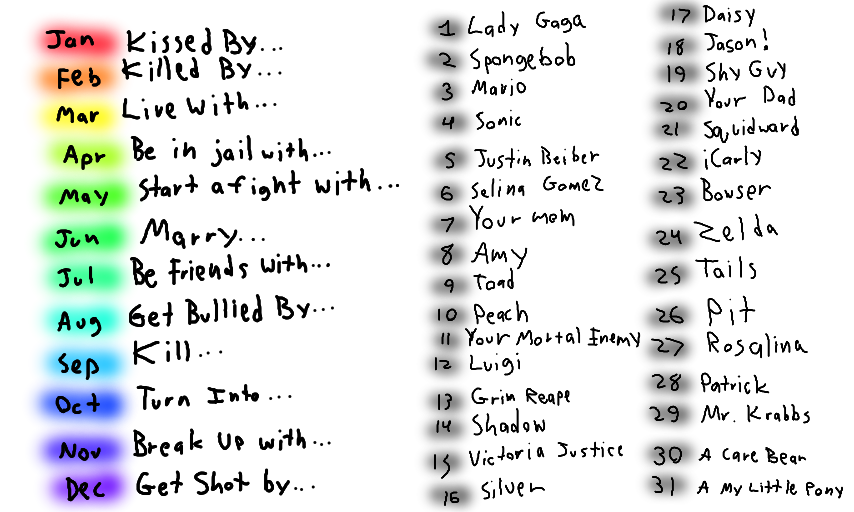 Jan Kissed By...
Feb Killed By...
Mar Live With...
Apr Be in jail with...
May Start a fight with...
Jun Marry...
Jul Be Friends With...
Aug Get Bullied By...
Sep Kill...
Oct Turn Into...
Nov Break Up with...
Dec Get Shot by...
1 Lady Gaga
2 Spongebob
3 Mario
4 Sonic
5 Justin Beiber
6 Selina Gomez
7 Your mom
8 Amy
9 Toad
10 Peach
11 Your Mortal Enemy
12 Luigi
13 Grin Reape
14 Shadow
15 Victoria Justice
16 Silver
17 Daisy
18 Jason!
19 Shy Guy
20 Your Dad
21 Squidward
22 iCarly
23 Bowser
24 Zelda
25 Tails
26 Pit
27 Rosalina
28 Patrick
29 Mr. Krabbs
30 A Care Bear
31 A My Little Pony